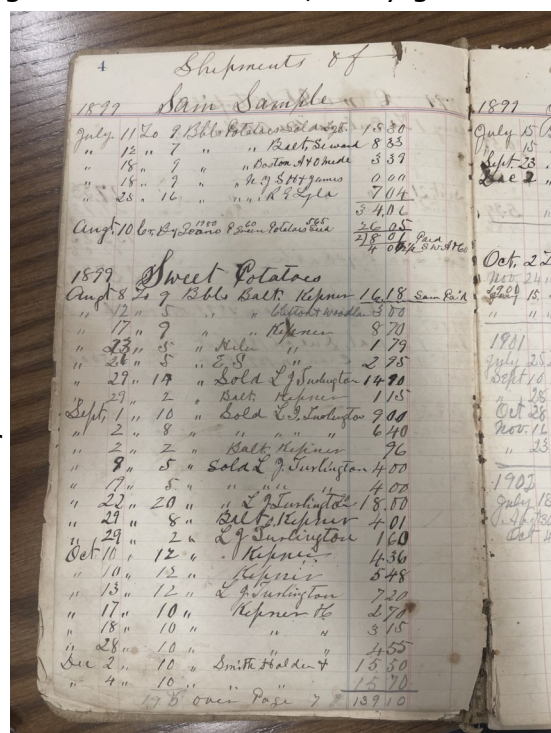 4
Shipments of
1899 Sam Sample
July 11 To 9 Bbls Potatoes Sold L.J.T. 15 30
" 12 " 7 " " Balt. Seward 8 33
" 18 " 9 " " Boston A + O Mede 3 39
" 18 " 9 " " N.Y. S H + James 0 00
" 25 " 16 " " " R G Lyla 7 04
34 06
Augt. 10 Cr. By Loans 26 05
Paid
1899 Sweet Potatoes
Augt 8 To 9 Bbls Balt. Kepner 16 18 Sam Paid
" 12 " 5 " " 3 00
" 17 " 9 " " Kepner 8 70
" 23 " 5 " 1 79
" 26 " 5 " 2 95
" 29 " 14 " Sold L J Turlington 14 90
" 29 " 2 " Balt. Kepner 1 15
Sept. 1 " 10 " Sold L. J. Turlington 9 00
" 2 " 8 " 6 40
" 2 " 2 " Balt. Kepner 96
" 9 " 5 " Sold L J. Turlington 4 00
" 19 " 5 " " " " " 4 00
" 22 " 20 " " L J Turlington 18.00
" 29 " 8 " Balt. Kepner 4 01
" 29 " 2 " L J Turlington 1 60
Oct 10 " 12 " " Kepner 4 36
" 10 " 12 " Kepner 5 48
" 13 " 12 " L J. Turlington 7 20
" 17 " 10 " Kepner 2 70
" 18 " 10 " " " 3 15
" 28 " 10 " " " 4 55
Dec 2 " 10 " Smith Holder + 15 50
" 4 " 10 " " " 15 70
over Page 7 139 10
1899
July 15
" 15
Sept 23
Dec 2
Oct. 2
Nov. 24
1900
" 15
1901
July 25
Sept 10
" 28
Oct 28
Nov. 16
" 23
1902
July 18
Oct 4